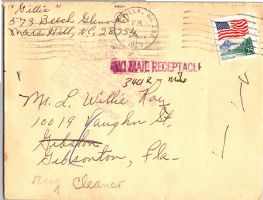 "Gillie"
573 Beech Glenn Rd
Mars Hill, N.C. 28754
PM
NO MAIL RECEPTACLE
Mr. L. Willie Ray
10019 Vaughn St,
Gibston
Gibsonton, Fla-
Rug
Cleaner